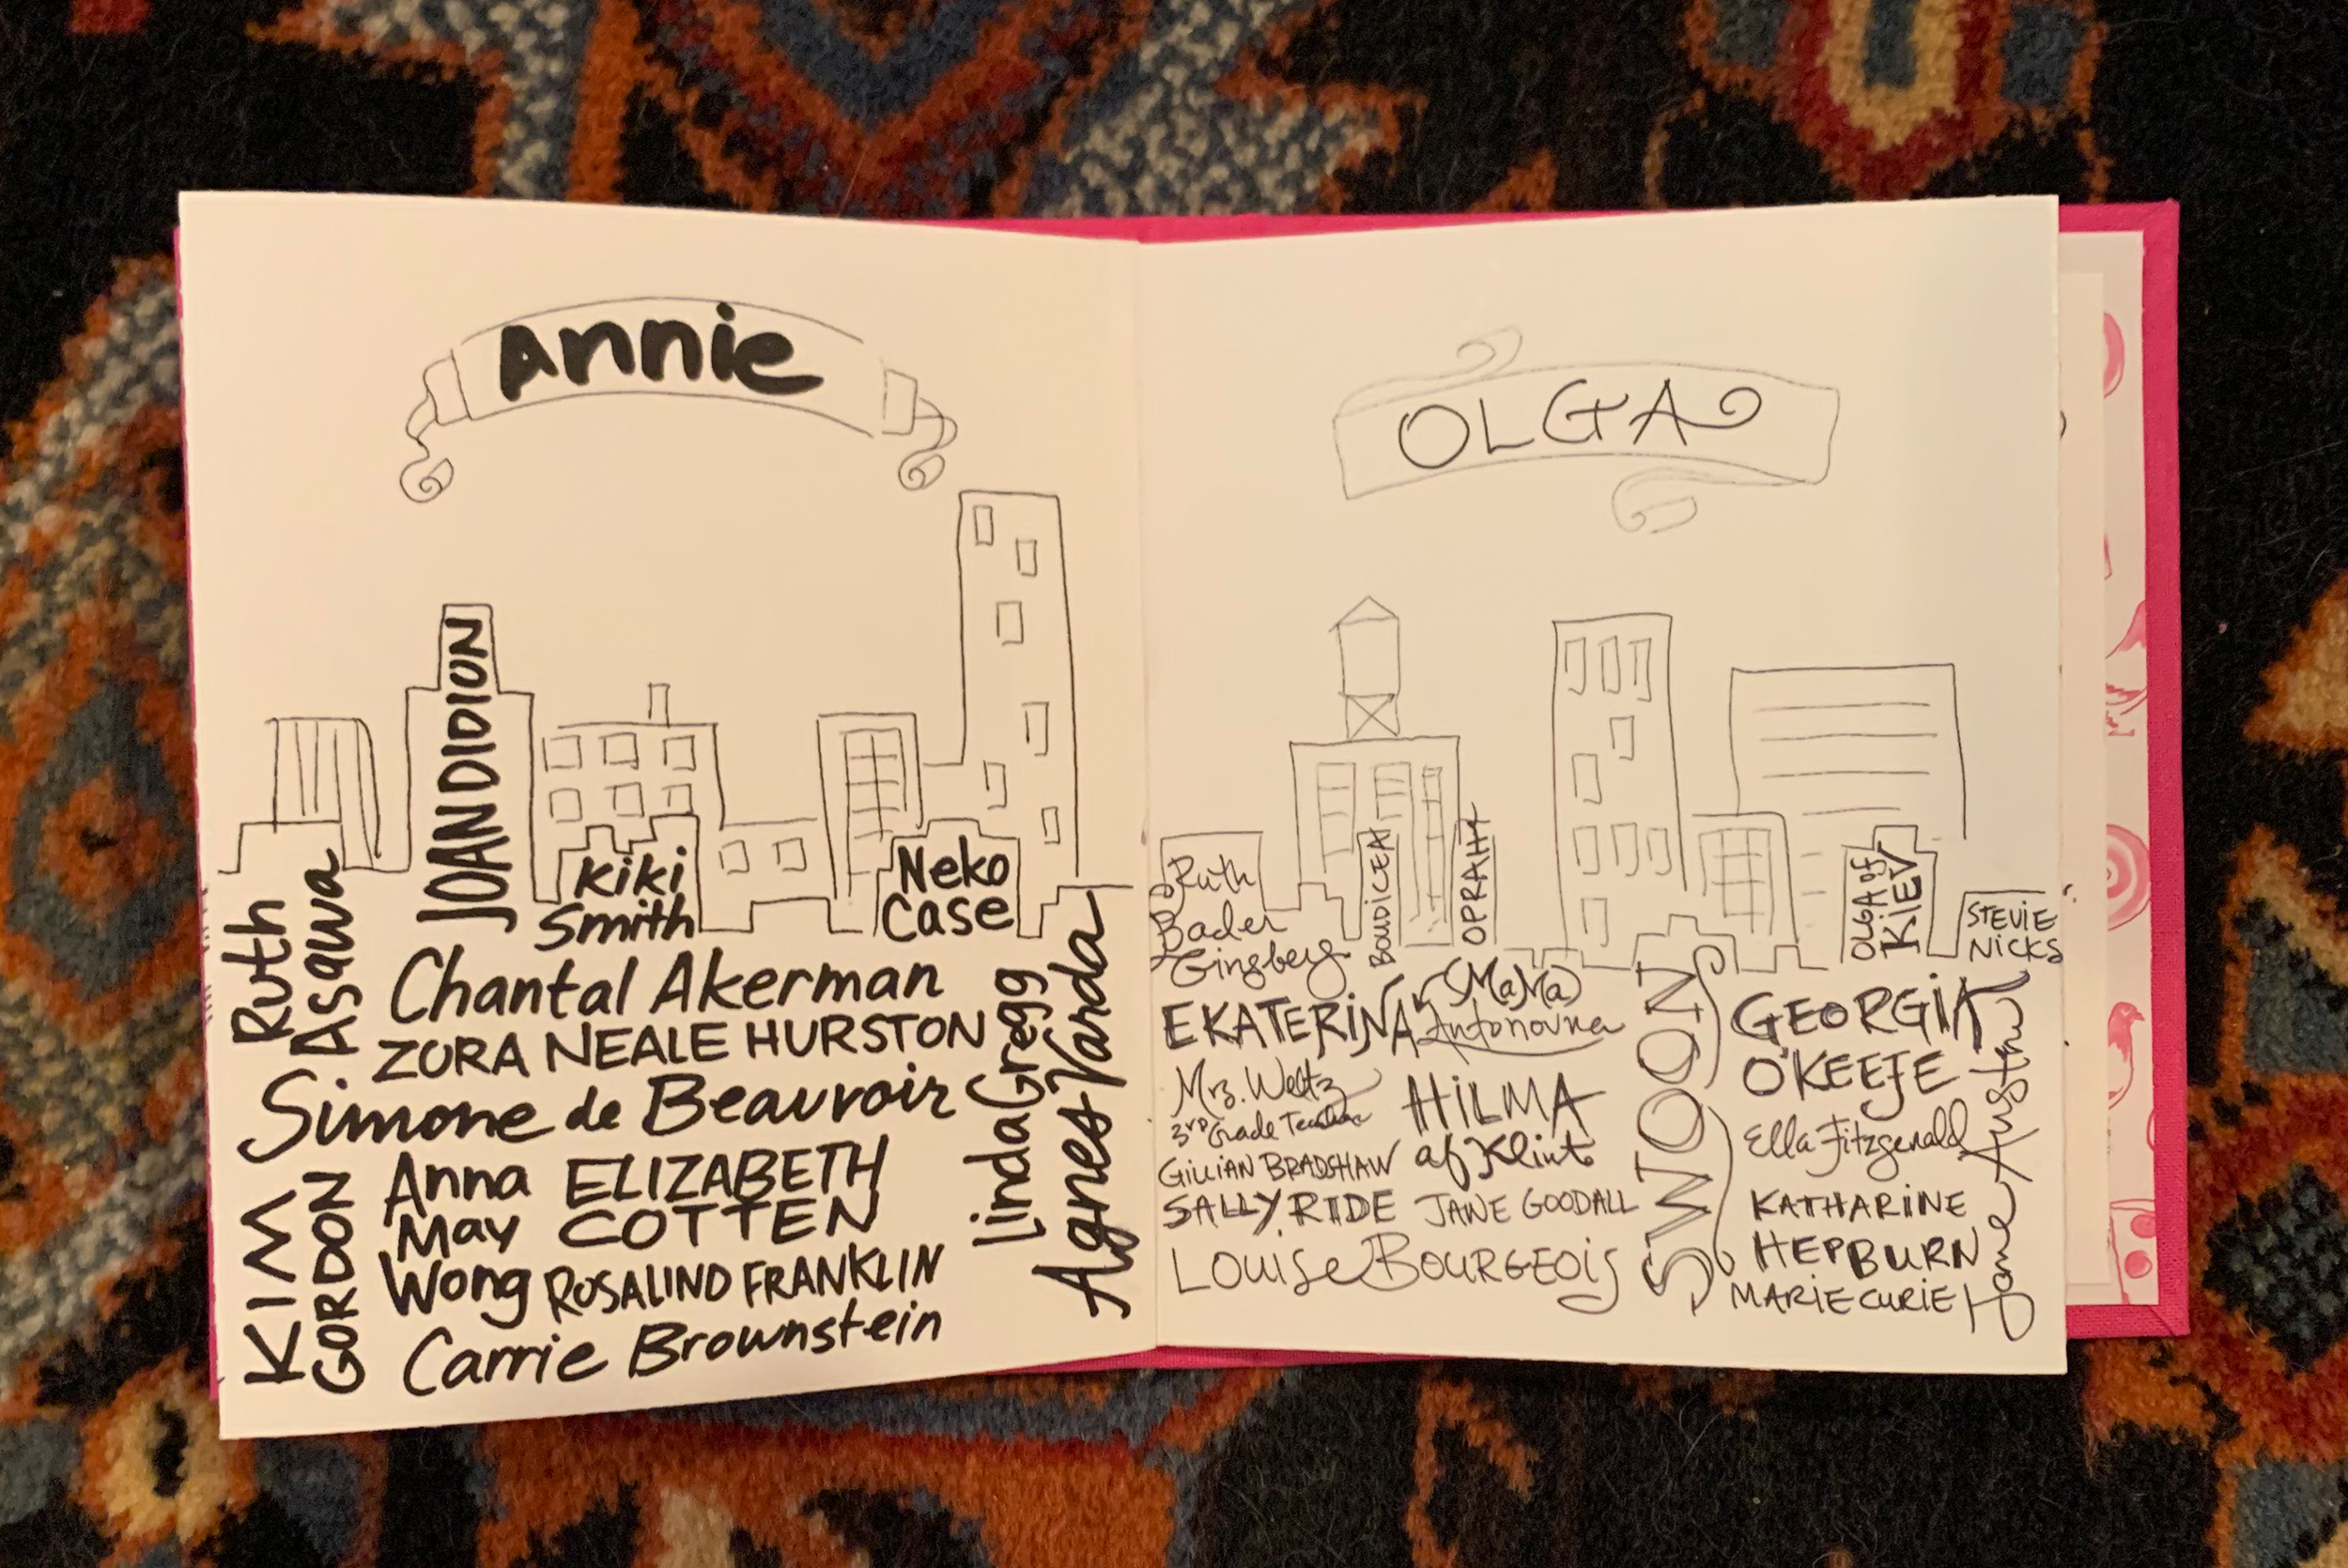 Annie
JOAN DIDION
Kiki
Smith
Neko
Case
Ruth
Asawa
Chantal Akerman
ZORA NEALE HURSTON
Simone de Beauvoir
Linda Gregg
Agnes Varda
KIM
GORDON
Anna
May
Wong
ELIZABETH
COTTEN
ROSALIND FRANKLIN
Carrie Brownstein
OLGA
Ruth
Bader
Ginsberg
BOUDICEA
OPRAH
OLGA of
KiEV
STEVIE
NICKS
EKATERINA
(MaMa)
Antonovna
Mrs. Weltz
3rd Grade Teacher
GILLIAN BRADSHAW
SALLY RIDE
HILMA
af Klint
JANE GOODALL
LOUISE BOURGEOIS
SWOON
GEORGIA
O'KEEFE
Ella Fitzgerald
KATHARINE
HEPBURN
MARIE CURIE
Jane Austen